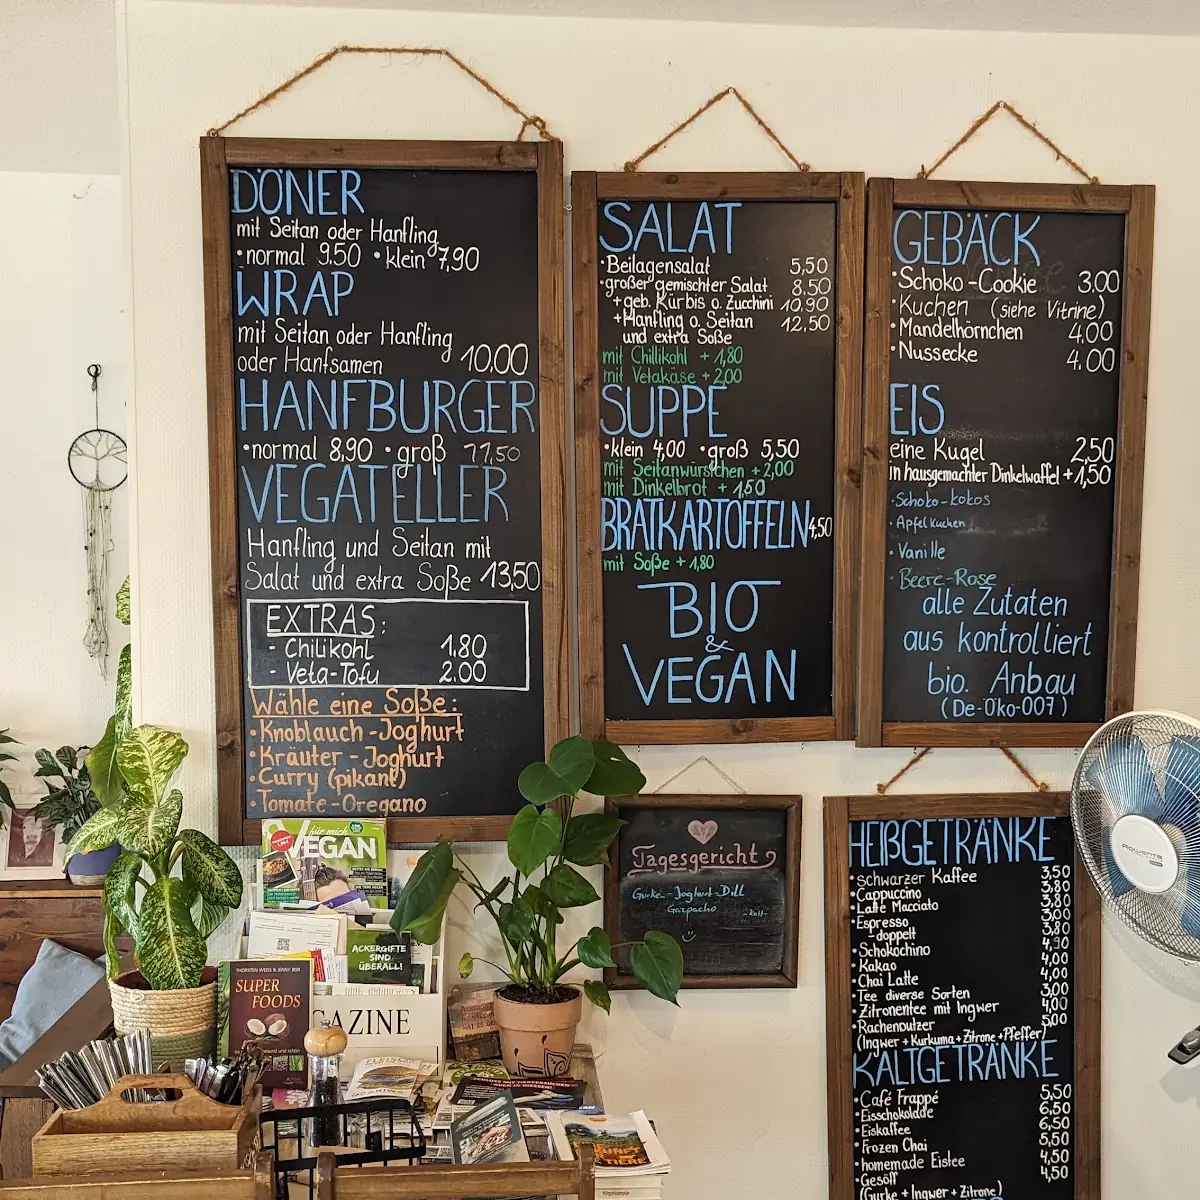 DÖNER
mit Seitan oder Hanfling
• normal 9.50 • klein 7,90
WRAP
mit Seitan oder Hanfling
oder Hanfsamen 10.00
HANFBURGER
• normal 8,90 • groß 11,50
VEGATELLER
Hanfling und Seitan mit
Salat und extra Soße 13,50
EXTRAS:
- Chilikohl 1.80
- Veta-Tofu 2.00
Wähle eine Soße:
• Knoblauch-Joghurt
• Kräuter-Joghurt
• Curry (pikant)
• Tomate-Oregano
SALAT
• Beilagensalat 5,50
• großer gemischter Salat 8.50
+ geb. Kürbis o. Zucchini 10,90
+ Hanfling o. Seitan 12,50
und extra Soße
mit Chillikohl + 1,80
mit Vetakäse + 2,00
SUPPE
• klein 4,00 • groß 5,50
mit Seitanwürstchen + 2,00
mit Dinkelbrot + 1,50
BRATKARTOFFELN 4,50
mit Soße + 1,80
BIO
&
VEGAN
GEBÄCK
• Schoko-Cookie 3,00
• Kuchen (siehe Vitrine)
• Mandelhörnchen 4,00
• Nussecke 4.00
EIS
eine Kugel 2,50
in hausgemachter Dinkelwaffel + 1,50
• Schoko-kokos
• Apfelkuchen
• Vanille
• Beere-Rose
alle Zutaten
aus kontrolliert
bio. Anbau
(De-Öko-007)
Tagesgericht
Gurke-Joghurt-Dill
Gazpacho -kalt-
HEIßGETRÄNKE
• schwarzer Kaffee 3,50
• Cappuccino 3,80
• Latte Macciato 3,80
• Espresso 3,00
- doppelt 3,80
• Schokochino 4,90
• Kakao 4,00
• Chai Latte 4,00
• Tee diverse Sorten 3,00
• Zitronentee mit Ingwer 4,00
• Rachenputzer 5,00
(Ingwer + Kurkuma + Zitrone + Pfeffer)
KALTGETRÄNKE
• Café Frappé 5,50
• Eisschokolade 6,50
• Eiskaffee 6,50
• Frozen Chai 5,50
• homemade Eistee 4,50
• Gesöff 4,50
(Gurke + Ingwer + Zitrone)
ROWENTA
für mich
VEGAN
ACKERGIFTE
SIND
ÜBERALL!
THORSTEN WEISS & JENNY BOR
SUPER
FOODS
GAZINE